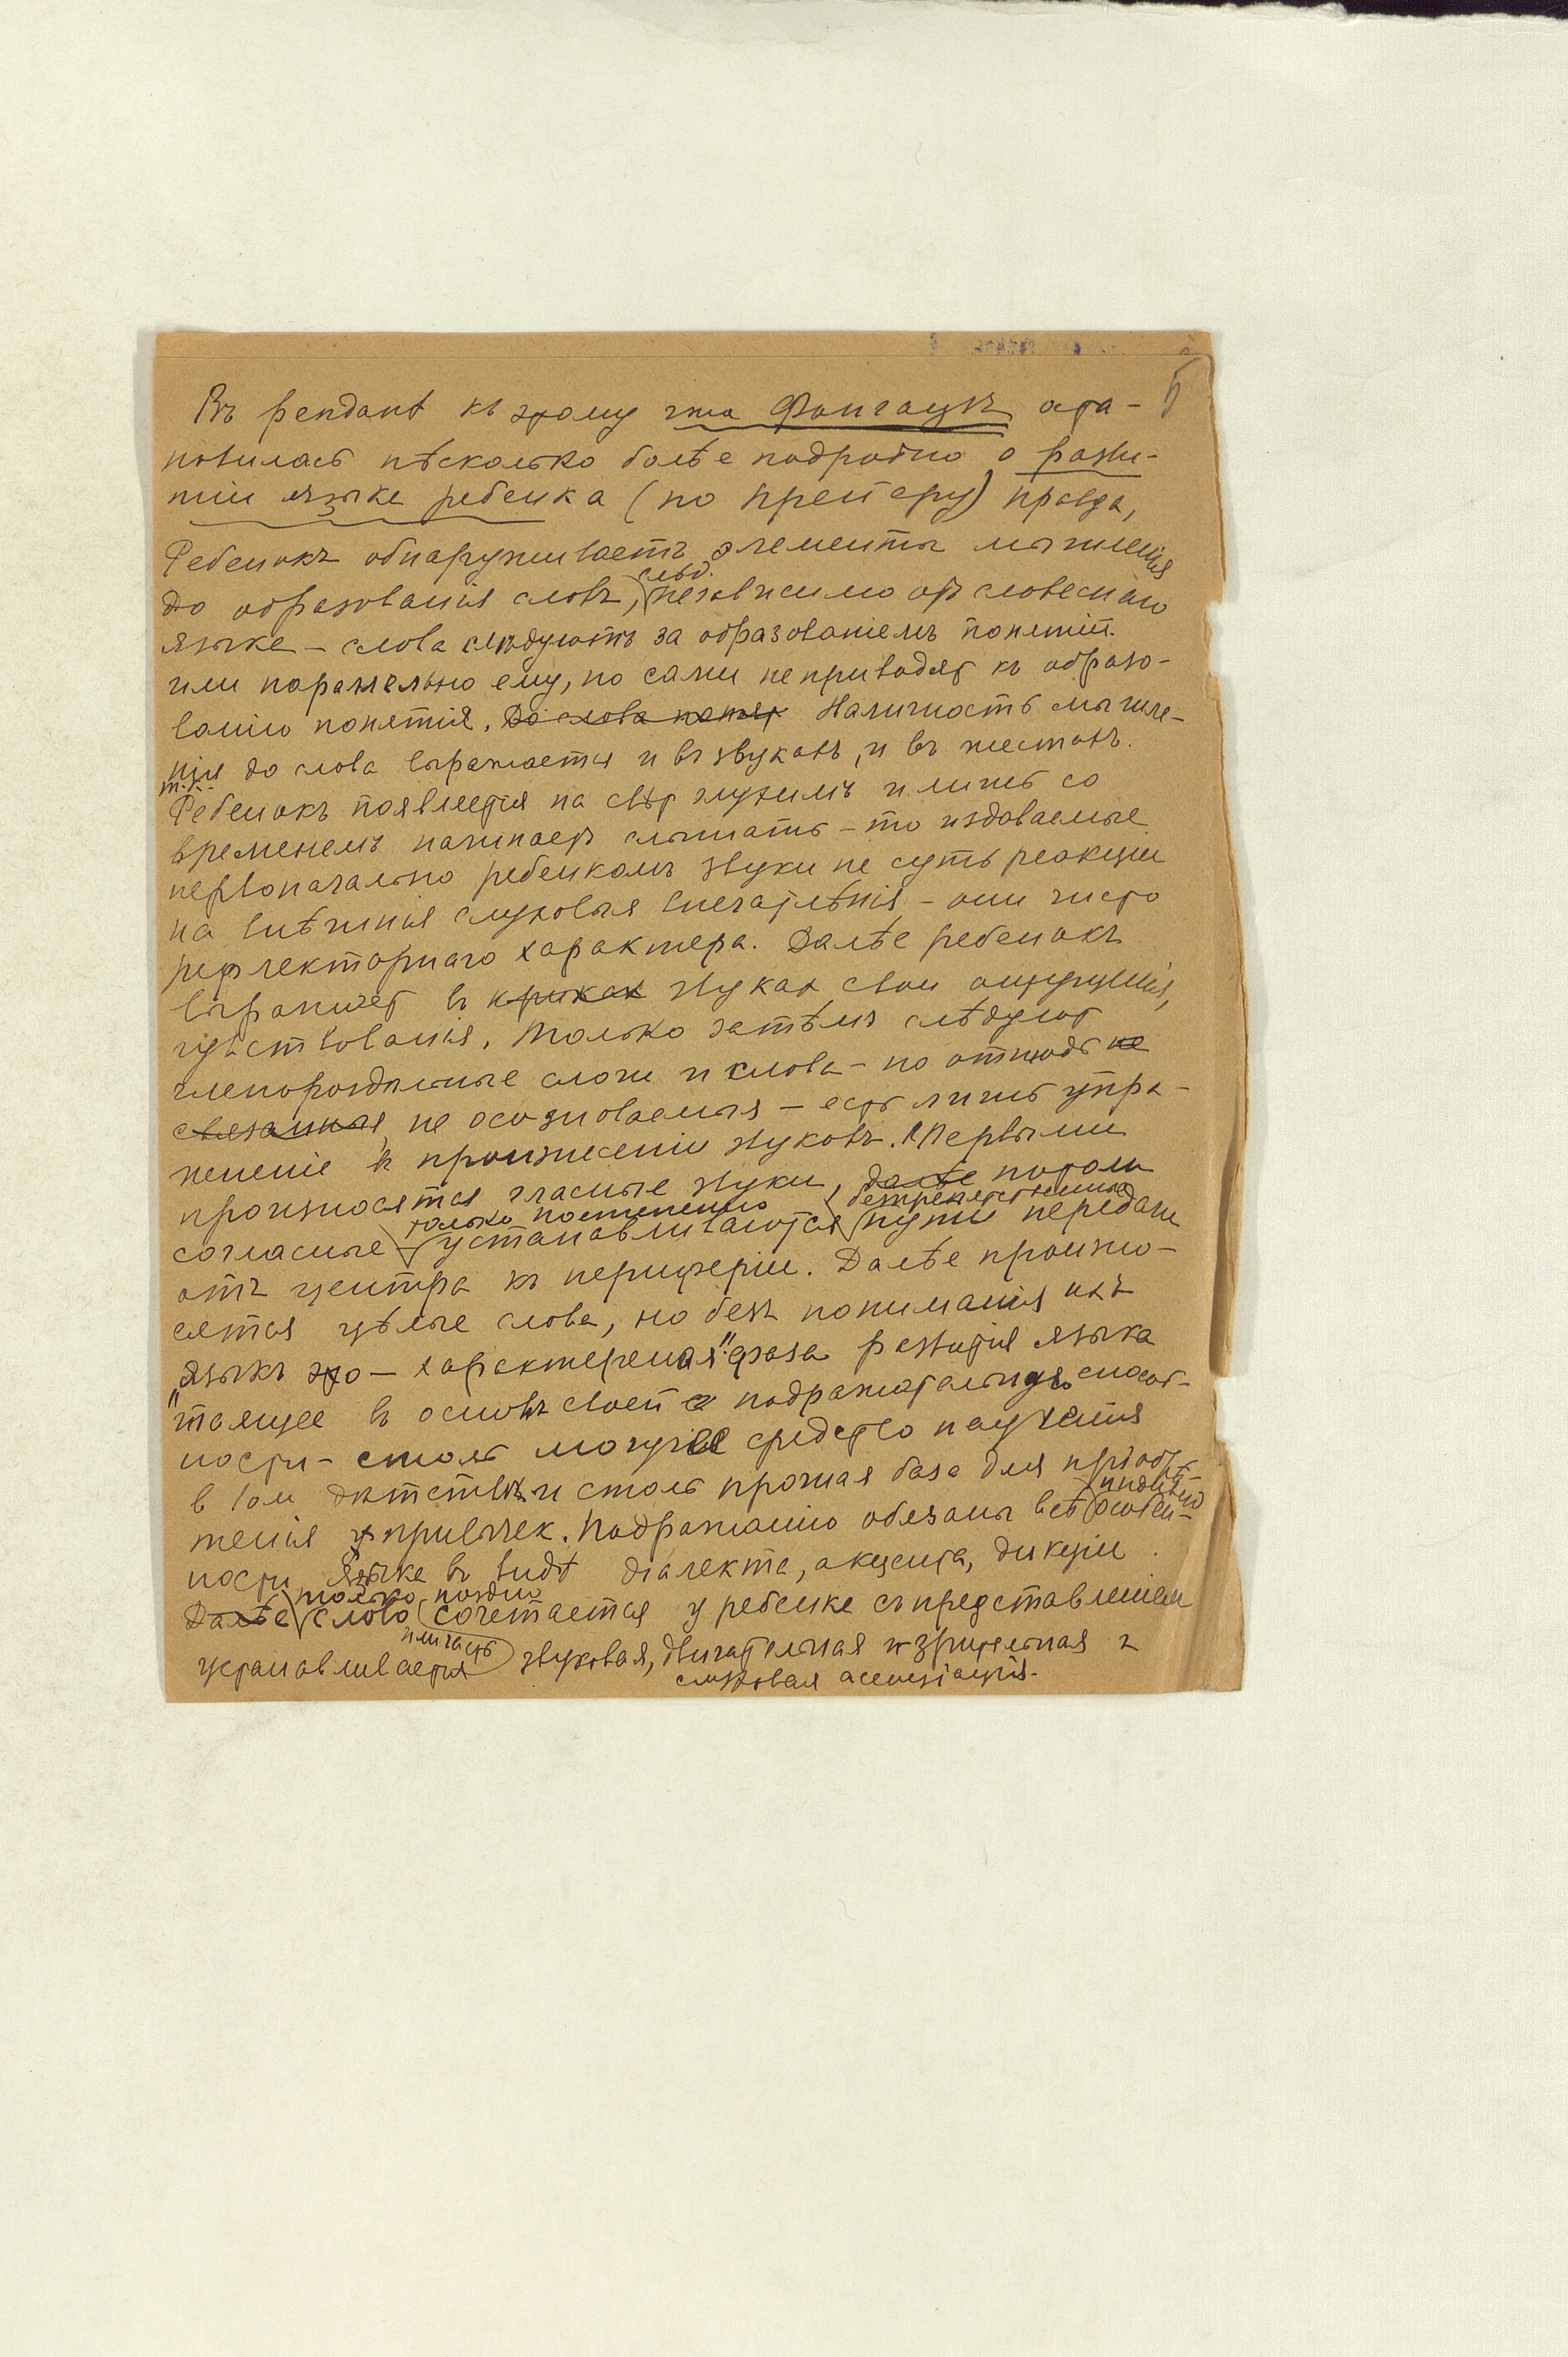 5
Въ pendant къ этому г-жа Фонгауцъ оста-
новилась нѣсколько болѣе подробно о разви-
тіи языка ребенка (по Прейеру) правда,
Ребенокъ обнаруживаетъ элементы мышленія
слѣд.
до образованія словъ, независимо отъ словеснаго
языка – слова слѣдуютъ за образованіемъ понятій
или параллельно ему, но сами не приводят къ образо-
ванію понятія. До слова понят Наличность мышле-
нія до слова выражается и въ звукахъ, и въ жестахъ.
т.к.
Ребенокъ появляется на свѣт глухимъ и лишь со
временемъ начинает слышать – то издаваемые
первоначально ребенкомъ звуки не суть реакціи
на внѣшнія слуховыя впечатлѣнія – они чисто
рефлекторнаго характера. Далѣе ребенокъ
выражает въ криках звуках свои ощущенія,
чувствованія. Только затѣмъ слѣдуют
членораздѣльные слоги и слова – но отнюдь не
связанныя, не осознаваемыя – есть лишь упра-
жненіе въ произнесеніи звуковъ. Первыми
произносятся гласные звуки, далѣе потом
только постепенно безпрепятственные
согласные – устанавливаются пути передачи
отъ центра къ периферіи. Далѣе произно-
сятся цѣлые слова, но безъ пониманія ихъ
„Языкъ эхо – характерная" фаза развитія языка
таящее въ основѣ своей подражательную способ-
ности – столь могучее средство научения
в дѣтствѣ и столь прочная база для пріобрѣ-
индивид
тенія привычек. Подражанію обязаны всѣ особен-
ности языка въ видѣ діалекта, акцента, дикціи.
только поздно
Далѣе слово сочетается у ребенка съ представленіем
устанавливается звуковая, двигательная и зрительная и
слуховая ассоціація.